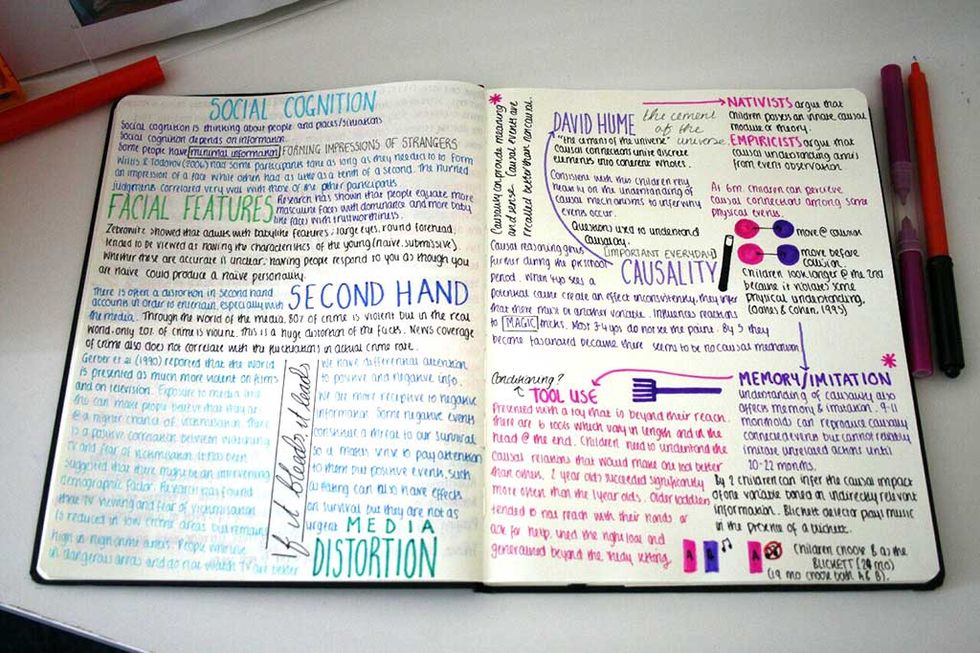 SOCIAL COGNITION
Social cognition is thinking about people and places/situations
Social cognition depends on information.
Some people have minimal information
FORMING IMPRESSIONS OF STRANGERS
Willis & Todorov (2006) had some participants take as long as they needed to to form
an impression of a face while other had as little as a tenth of a second. The hurried
judgments correlated very well with those of the other participants.
FACIAL FEATURES
Research has shown that people equate more
masculine faces with dominance and more baby
like faces with trustworthiness.
Zebrowitz showed that adults with babylike features; large eyes, round forehead,
tended to be viewed as having the characteristics of the young (naive, submissive).
Whether these are accurate is unclear. Having people respond to you as though you
are naive could produce a naive personality.
There is often a distortion in second hand
accounts in order to entertain, especially with
the media.
SECOND HAND
Through the world of the media. 80% of crime is violent but in the real
world, only 20% of crime is violent. This is a huge distortion of the facts. News coverage
of crime also does not correlate with the fluctuations in actual crime rate.
Gerber et al (1990) reported that the world
is presented as much more violent on films
and on television. Exposure to media like
this can make people believe that they are
@ a higher chance of victimisation. There
is a positive correlation between watching
TV and fear of victimisation. It has been
suggested that there might be an intervening
demographic factor. Research has found
that TV viewing and fear of victimisation
is reduced in low crime areas but remains
high in high crime areas. People who live
in dangerous areas and do not watch TV
If it bleeds, it leads
We have differential attention
to positive and negative info.
We are more receptive to negative
information. Some negative events
constitute a threat to our survival
so it makes sense to pay attention
to them but positive events, such
as eating can also have effects
on survival but they are not as
urgent
MEDIA
DISTORTION
* Causality can provide meaning
and sense. Causal events are
recalled better than noncausal.
DAVID HUME
the cement
of the
universe.
"The cement of the universe"
Causal connections unite discrete
elements into coherent wholes.
Consistent with this children rely
heavily on the understanding of
causal mechanisms to infer why
events occur.
Questions used to understand
causality.
[IMPORTANT EVERYDAY]
CAUSALITY
NATIVISTS argue that
children posses an innate causal
module or theory.
EMPIRICISTS argue that
causal understanding arises
from event observation.
At 6m children can perceive
causal connections among some
physical events.
move @ collision
move before
collision.
Children look longer @ the 2nd
because it violates some
physical understanding.
(Oakes & Cohen, 1995)
Causal reasoning grows
further during the preschool
period. When 4yo sees a
potential cause create an effect inconsistently, they infer
that there must be another variable. Influences reactions
to MAGIC tricks. Most 3-4 yos do not see the point. By 5 they
become fascinated because there seems to be no causal mechanism
Conditioning?
TOOL USE
Presented with a toy that is beyond their reach.
There are 6 tools which vary in length and in the
head @ the end. Children need to understand the
causal relations that would make one tool better
than others. 2 year olds succeeded significantly
more often than the 1 year olds. Older toddlers
tended to not reach with their hands or
ask for help, used the right tool and
generalised beyond the study setting.
*
MEMORY/IMITATION
understanding of causality also
affects memory & imitation. 9-11
month olds can reproduce causally
connected events but cannot reliably
imitate unrelated actions until
20-22 months.
By 2 children can infer the causal impact
of one variable based on indirectly relevant
information. Blickett detector plays music
in the presence of a blickett.
A B
A
Children choose B as the
BLICKETT (24 mo)
(19 mo choose both A & B).